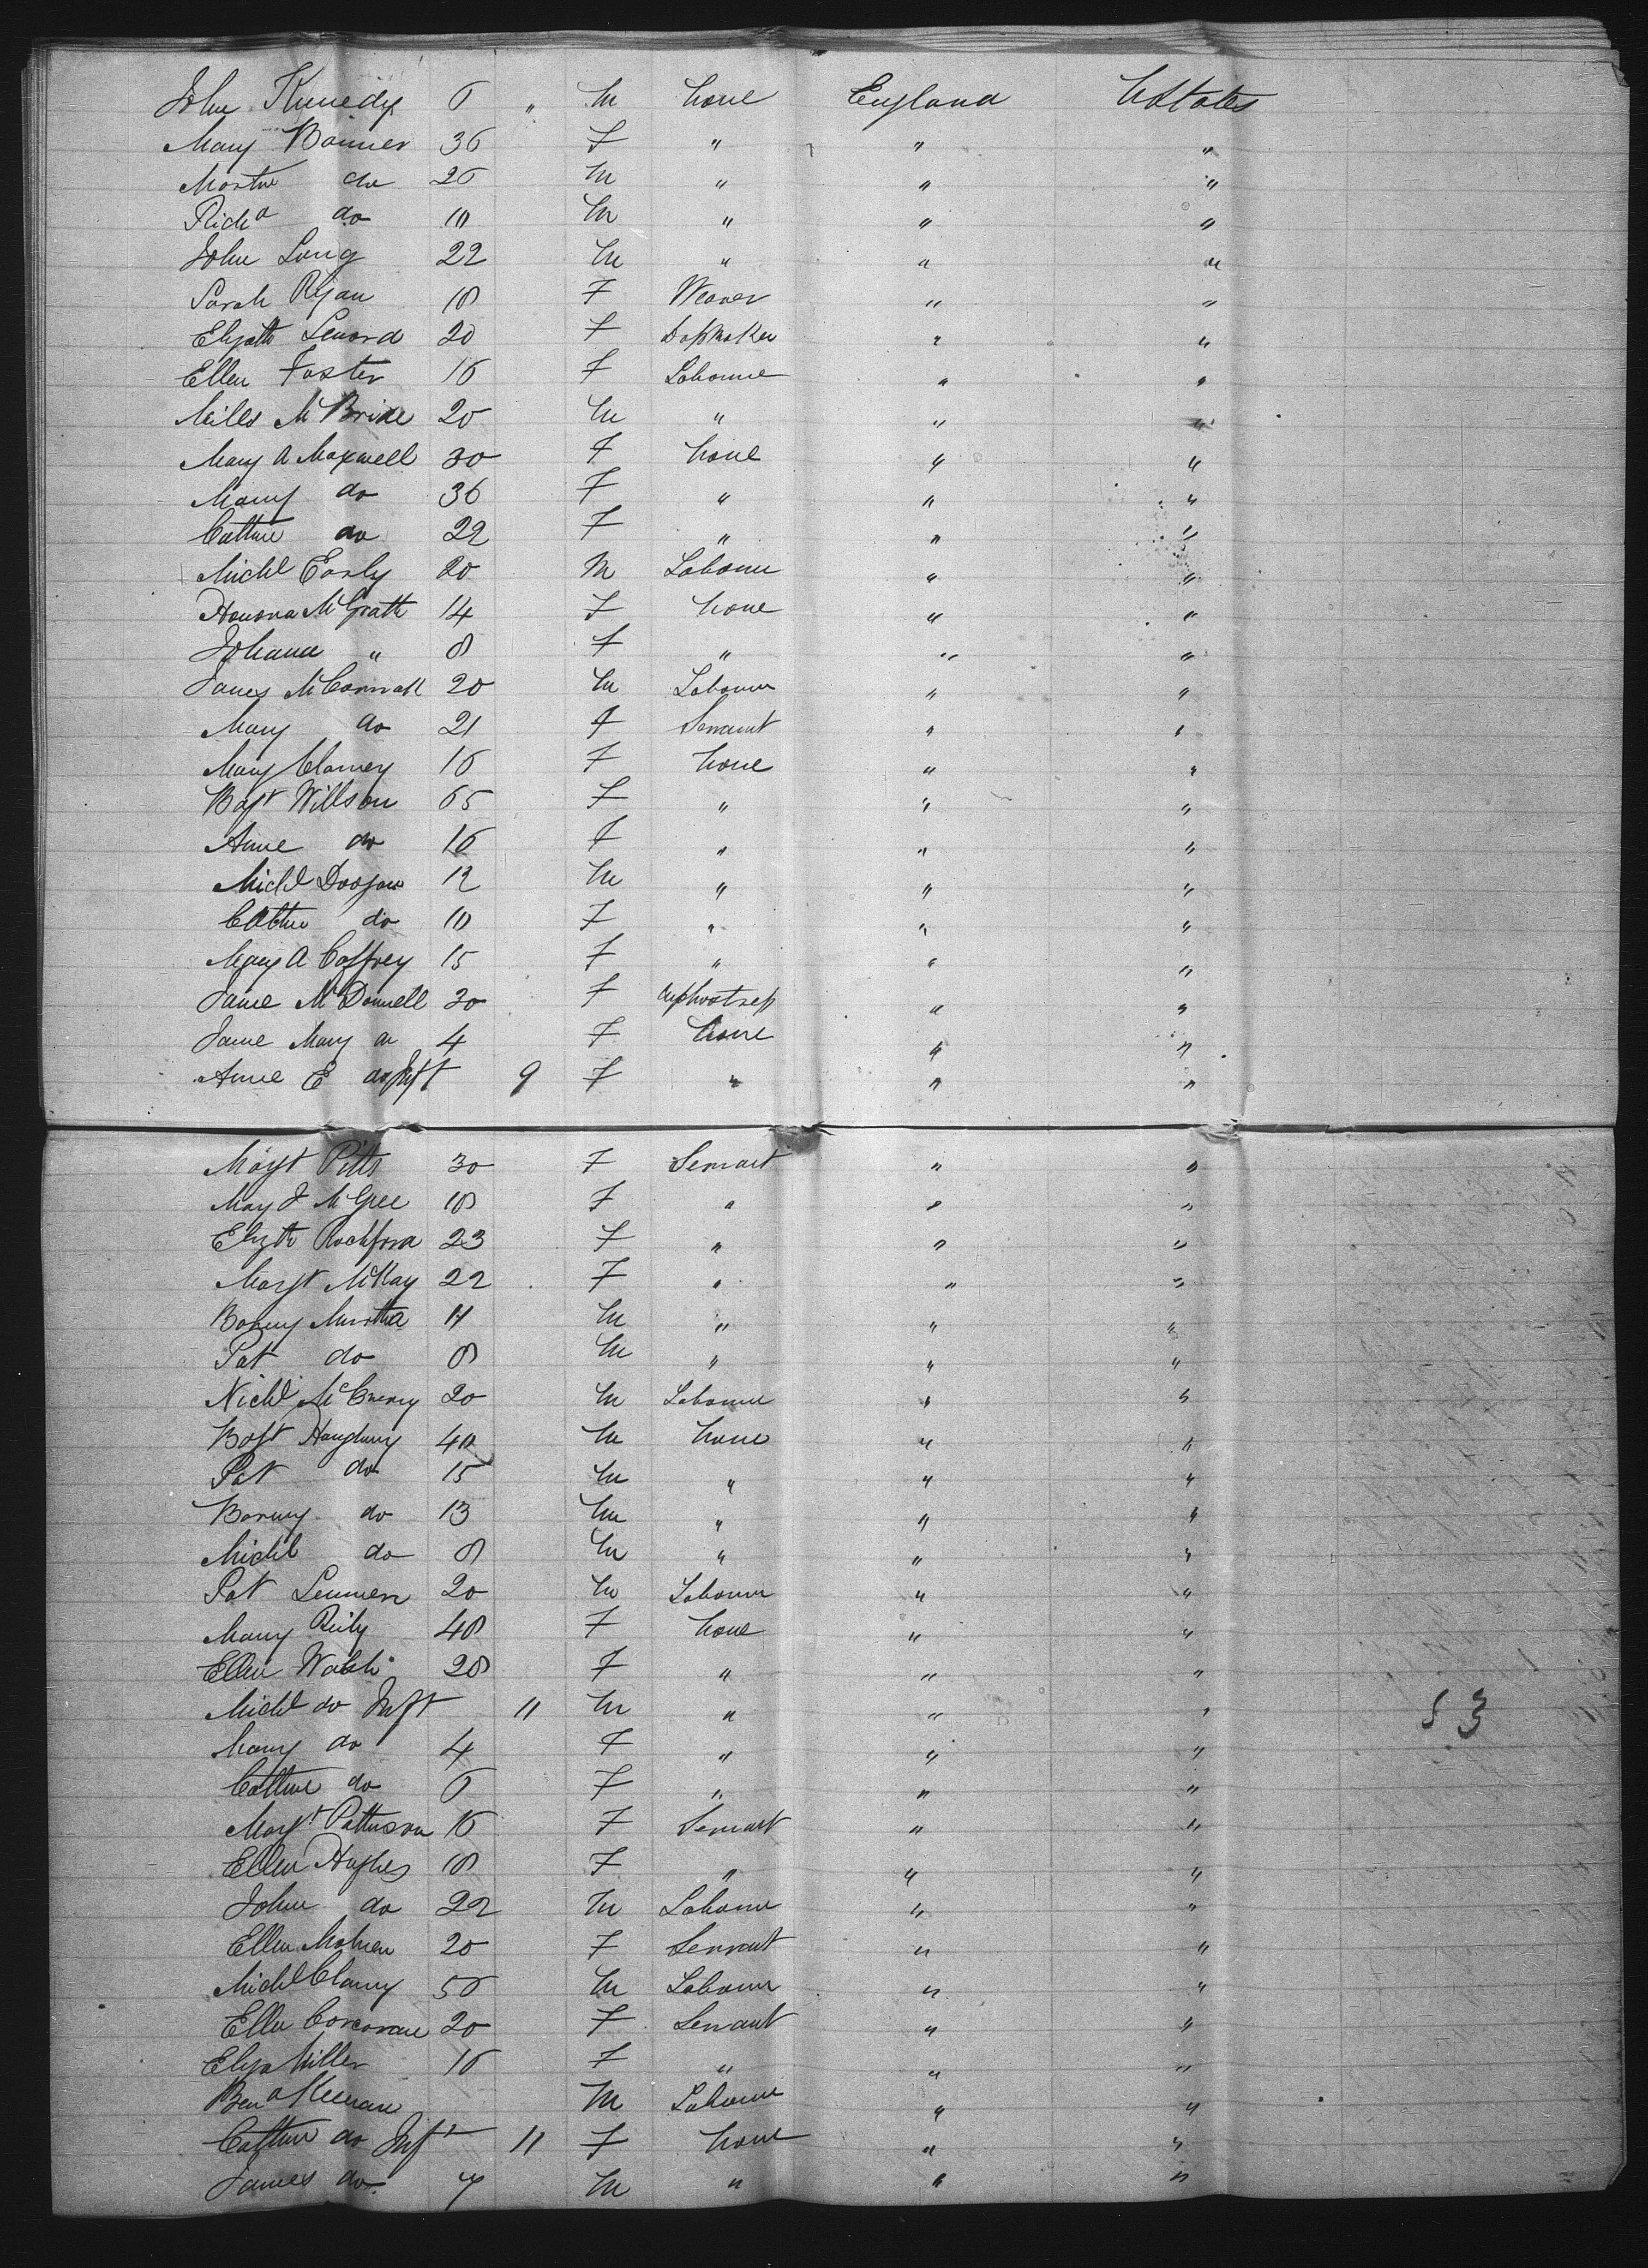 John Kenedy 6 " M None England UStates
Mary Bonner 36 F " " "
Martin do 26 M " " "
Richd do 10 M " " "
John Long 22 M " " "
Sarah Ryan 18 F Weaver " "
Elizath Lenord 20 F " "
Ellen Foster 16 F Labourer " "
Miles McBride 20 M " " "
Mary A Maxwell 30 F None " "
Mary do 36 F " " "
Cathne do 22 F " " "
Michl Early 20 M Labourer " "
Honora McGrath 14 F None " "
Johana " 8 F " " "
James McCormack 20 M Labourer " "
Mary do 21 F Servant " "
Mary Clamey 16 F None " "
Bgt Willson 65 F " " "
Anne do 16 F " " "
Michl Doogan 12 M " " "
Cathne do 10 F " " "
Mary A Caffrey 15 F " " "
Jane McDonnell 30 F " "
Jane Mary do 4 F None " "
Anne E do Inft 9 F " " "
Margt Pitts 30 F Servant " "
Mary J McGee 18 F " " "
Elizth Rochford 23 F " " "
Margt McKay 22 F " " "
Barney Murtha 11 M " " "
Pat do 8 M " " "
Nichl 20 M Labourer " "
Bgt 40 M None " "
Pat do 15 M " " "
Barney do 13 M " " "
Michl do 8 M " " "
Pat Lennen 20 M Labourer " "
Mary Reily 48 F None " "
Ellen Walsh 28 F " " "
Michl do Inft 11 M " " "
Mary do 4 F " " "
Cathne do 6 F " " "
Margt Patterson 16 F Servant " "
Ellen Hughes 18 F " " "
John do 22 M Labourer " "
Ellen 20 F Servant " "
Michl Clamy 56 M Labourer " "
Ellen Corcoran 20 F Servant " "
Eliza Miller 16 F " " "
Bend Keenan M Labourer " "
Cathne do Inft 11 F None " "
James do 7 M " " "
53